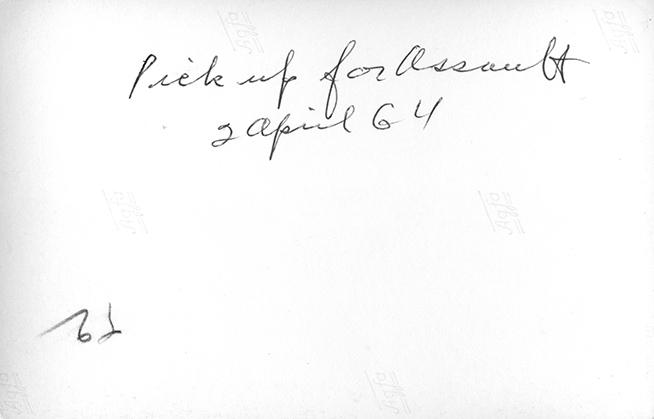 Pick up for Assault
2 April 64